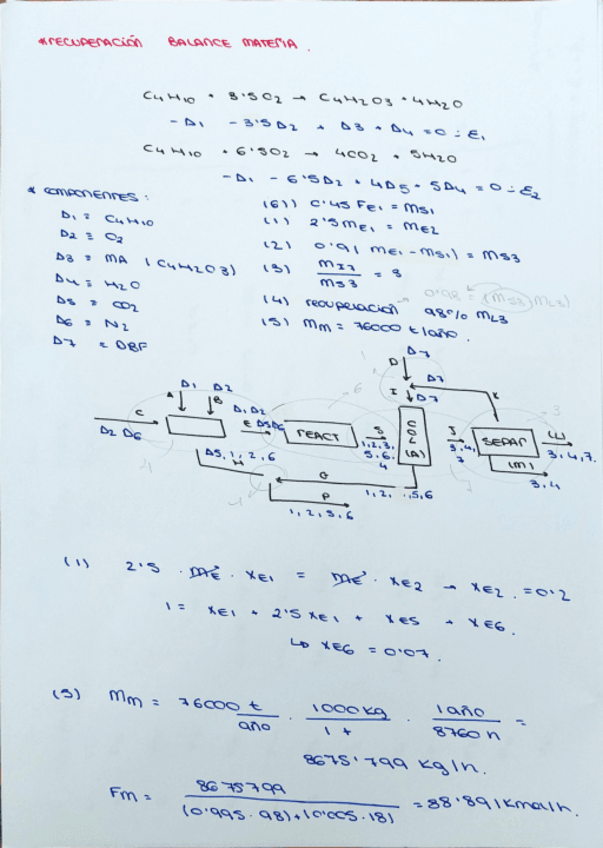 *RECUPERACIÓN BALANCE MATERIA.
C4H10 + 3'5O2 → C4H2O3 + 4H2O
-A1 -3'5A2 + A3 + A4 = 0 = E1
C4H10 + 6'5O2 → 4CO2 + 5H2O
-A1 - 6'5A2 + 4A5 + 5A4 = 0 = E2
* COMPONENTES:
A1 ≡ C4H10
A2 ≡ O2
A3 ≡ MA (C4H2O3)
A4 ≡ H2O
A5 ≡ CO2
A6 ≡ N2
A7 ≡ DBF
(6)) 0'45 FE1 = MS1
(1) 2'5 mE1 = mE2
(2) 0'91 (mE1 - mS1) = mS3
(3) mI7 / mS3 = 3
(4) recuperación 98% mL3
(5) Mm = 76000 t/año.
A7
D
A1 A2
A B
C
A2 A6
A1, A2
E A5 A6
REACT
S
1,2,3,
5,6,
4
I A7
A7
K
COL
(A)
J
3,4,
7
SEPAR
(L)
3,4,7.
(M)
3,4
A5, 1, 2, 6
H
G
1,2, ,5,6
P
1,2,5,6
(1) 2'5 · mE · XE1 = mE · XE2 → XE2 = 0'2
1 = XE1 + 2'5 XE1 + XE5 + XE6.
↳ XE6 = 0'07.
(5) Mm = 76000 t/año · 1000 kg/1 t · 1 año/8760 h =
8675'799 kg/h.
Fm = 8675799 / (0'995·98)+(0'005·18) = 88'891 kmol/h.